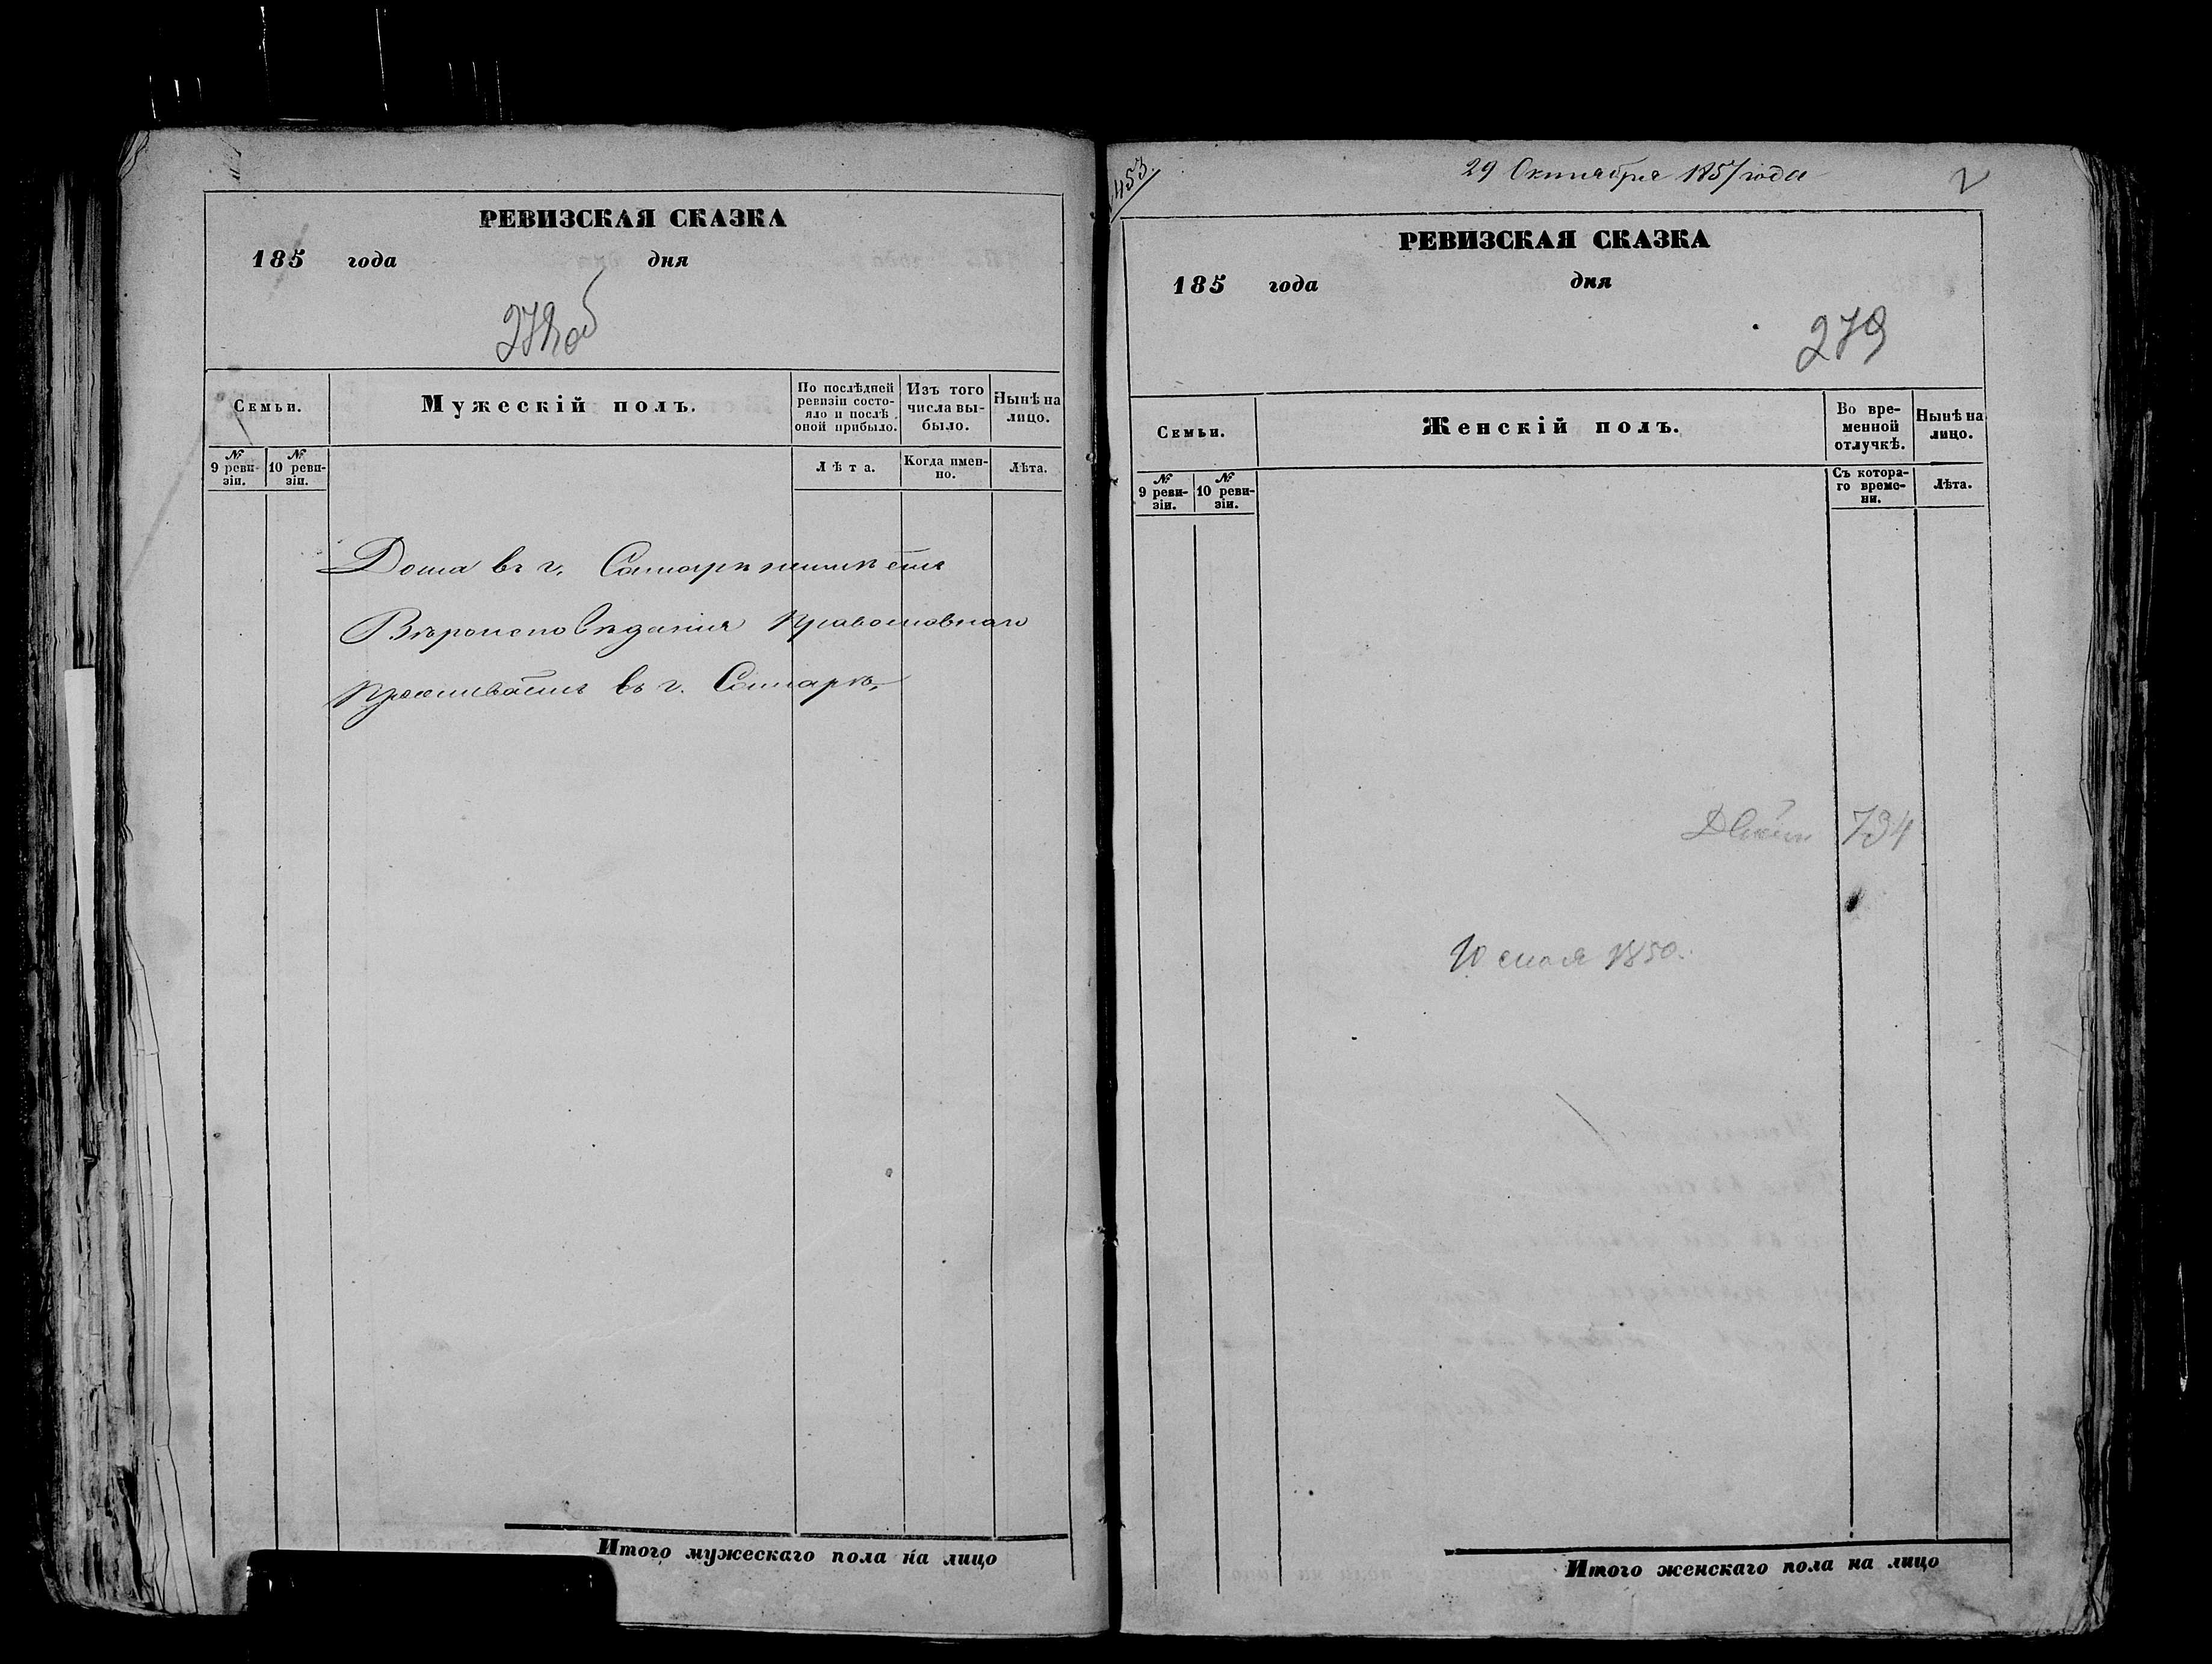 РЕВИЗСКАЯ СКАЗКА
185 года дня
278 об
Семьи.
Мужескій полъ.
По послѣдней ревизіи состояло и послѣ оной прибыло.
Изъ того числа выбыло.
Нынѣ на лицо.
№ 9 ревизіи.
№ 10 ревизіи.
Лѣта.
Когда именно.
Лѣта.
Дома въ г. Самарѣ неимѣетъ
Вѣроисповѣданія Православнаго
Проживаетъ въ г. Самарѣ,
Итого мужескаго пола на лицо
453.
29 Октября 1857 года
2
РЕВИЗСКАЯ СКАЗКА
185 года дня
279
Семьи.
Женскій полъ.
Во временной отлучкѣ.
Нынѣ на лицо.
№ 9 ревизіи.
№ 10 ревизіи.
Съ котораго времени.
Лѣта.
794
1850.
Итого женскаго пола на лицо